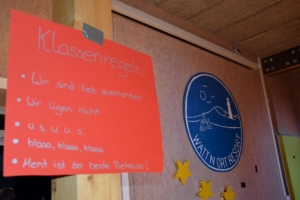 Klassenregeln
• Wir sind lieb zueinander
• Wir lügen nicht
• u.s.w.u.s.
• blaaa, blaaa, blaaa
• Ment ist der beste Betreuer!
WATT'N DAT RESORT